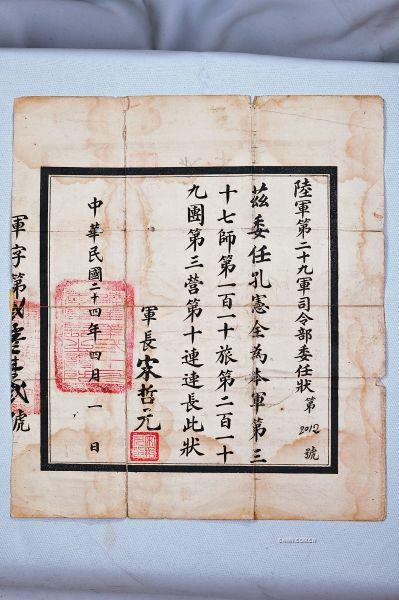 陸軍第二十九軍司令部委任狀 第2012號
茲委任孔憲全為本軍第三
十七師第一百一十旅第二百一十
九團第三營第十連連長此狀
軍長宋哲元
中華民國二十四年四月一日
軍字第貳零壹貳號